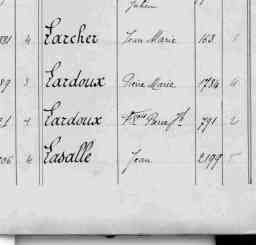 Julien
4 Larcher Jean Marie 163
89 3 Lardoux Pierre Marie 1784 4
Lardoux 791 2
206 4 Lasalle Jean 2199 5